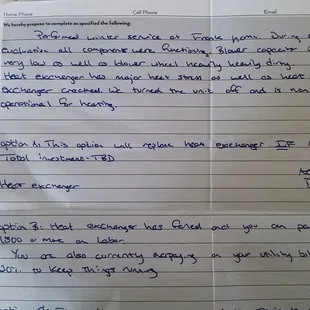 Home Phone Cell Phone Email
We hereby propose to complete as specified the following:
Performed winter service at Frank home. During
evaluation all components were functioning. Blower capacitor
very low as well as blower wheel heavily heavily dirty.
Heat exchanger has major heat stress as well as heat
exchanger cracked. We turned the unit off and is non
operational for heating.
option A: This option will replace heat exchanger. IF
Total investment-TBD
Heat exchanger
option B: Heat exchanger has failed and you can pa
1,800 or more on labor.
You are also currently on your utility bil
20% to keep things running